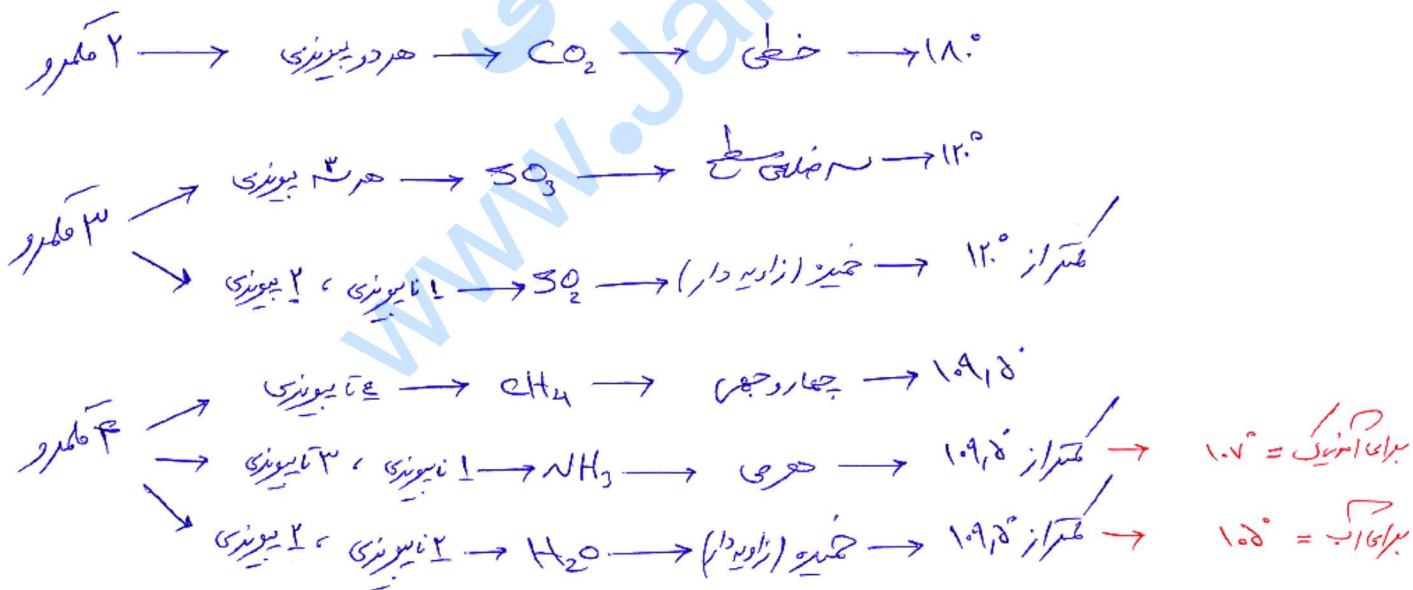 ۲ قلمرو → هر دو پیوندی → CO₂ → خطی → ۱۸۰°
هر سه ۳ پیوندی → SO₃ → سه ضلعی مسطح → ۱۲۰°
۳ قلمرو
۱ ناپیوندی ، ۲ پیوندی → SO₂ → خمیده (زاویه دار) → کمتر از ۱۲۰°
۴ تا پیوندی → CH₄ → چهاروجهی → ۱۰۹,۵°
۴ قلمرو → ۱ ناپیوندی ، ۳ تا پیوندی → NH₃ → هرمی → کمتر از ۱۰۹,۵° → برای آمونیاک = ۱۰۷°
۲ ناپیوندی ، ۲ پیوندی → H₂O → خمیده (زاویه دار) → کمتر از ۱۰۹,۵° → برای آب = ۱۰۵°